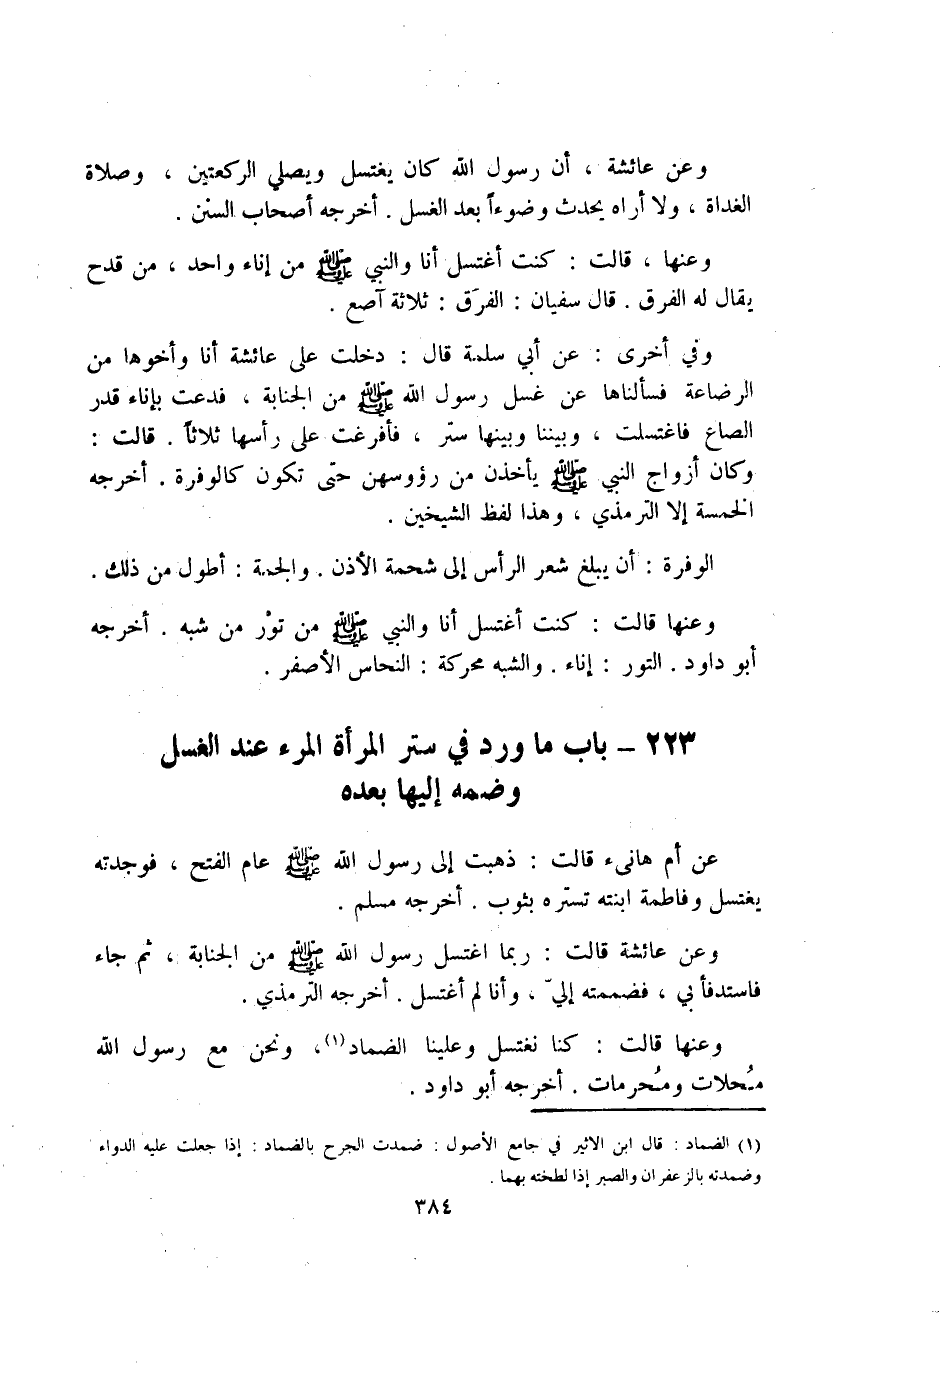 وعن عائشة ، أن رسول الله كان يغتسل ويصلي الركعتين ، وصلاة
الغداة ، ولا أراه يحدث وضوءاً بعد الغسل . أخرجه أصحاب السنن .
وعنها ، قالت : كنت أغتسل أنا والنبي ﷺ من إناء واحد ، من قدح
يقال له الفرق . قال سفيان : الفرَق : ثلاثة آصع .
وفي أخرى : عن أبي سلمة قال : دخلت على عائشة أنا وأخوها من
الرضاعة فسألناها عن غسل رسول الله ﷺ من الجنابة ، فدعت بإناء قدر
الصاع فاغتسلت ، وبيننا وبينها ستر ، فأفرغت على رأسها ثلاثاً . قالت :
وكان أزواج النبي ﷺ يأخذن من رؤوسهن حتى تكون كالوفرة . أخرجه
الخمسة إلا الترمذي ، وهذا لفظ الشيخين .
الوفرة : أن يبلغ شعر الرأس إلى شحمة الأذن . والجمة : أطول من ذلك .
وعنها قالت : كنت أغتسل أنا والنبي ﷺ من توْر من شبه . أخرجه
أبو داود . التور : إناء . والشبه محركة : النحاس الأصفر .
٢٢٣ – باب ما ورد في ستر المرأة المرء عند الغسل
وضمه إليها بعده
عن أم هانىء قالت : ذهبت إلى رسول الله ﷺ عام الفتح ، فوجدته
يغتسل وفاطمة ابنته تستره بثوب . أخرجه مسلم .
وعن عائشة قالت : ربما اغتسل رسول الله ﷺ من الجنابة ، ثم جاء
فاستدفأ بي ، فضممته إليّ ، وأنا لم أغتسل . أخرجه الترمذي .
وعنها قالت : كنا نغتسل وعلينا الضماد(١)، ونحن مع رسول الله
مُحلات ومُحرمات . أخرجه أبو داود .
(١) الضماد : قال ابن الاثير في جامع الأصول : ضمدت الجرح بالضماد : إذا جعلت عليه الدواء
وضمدته بالزعفران والصبر إذا لطخته بهما .
٣٨٤